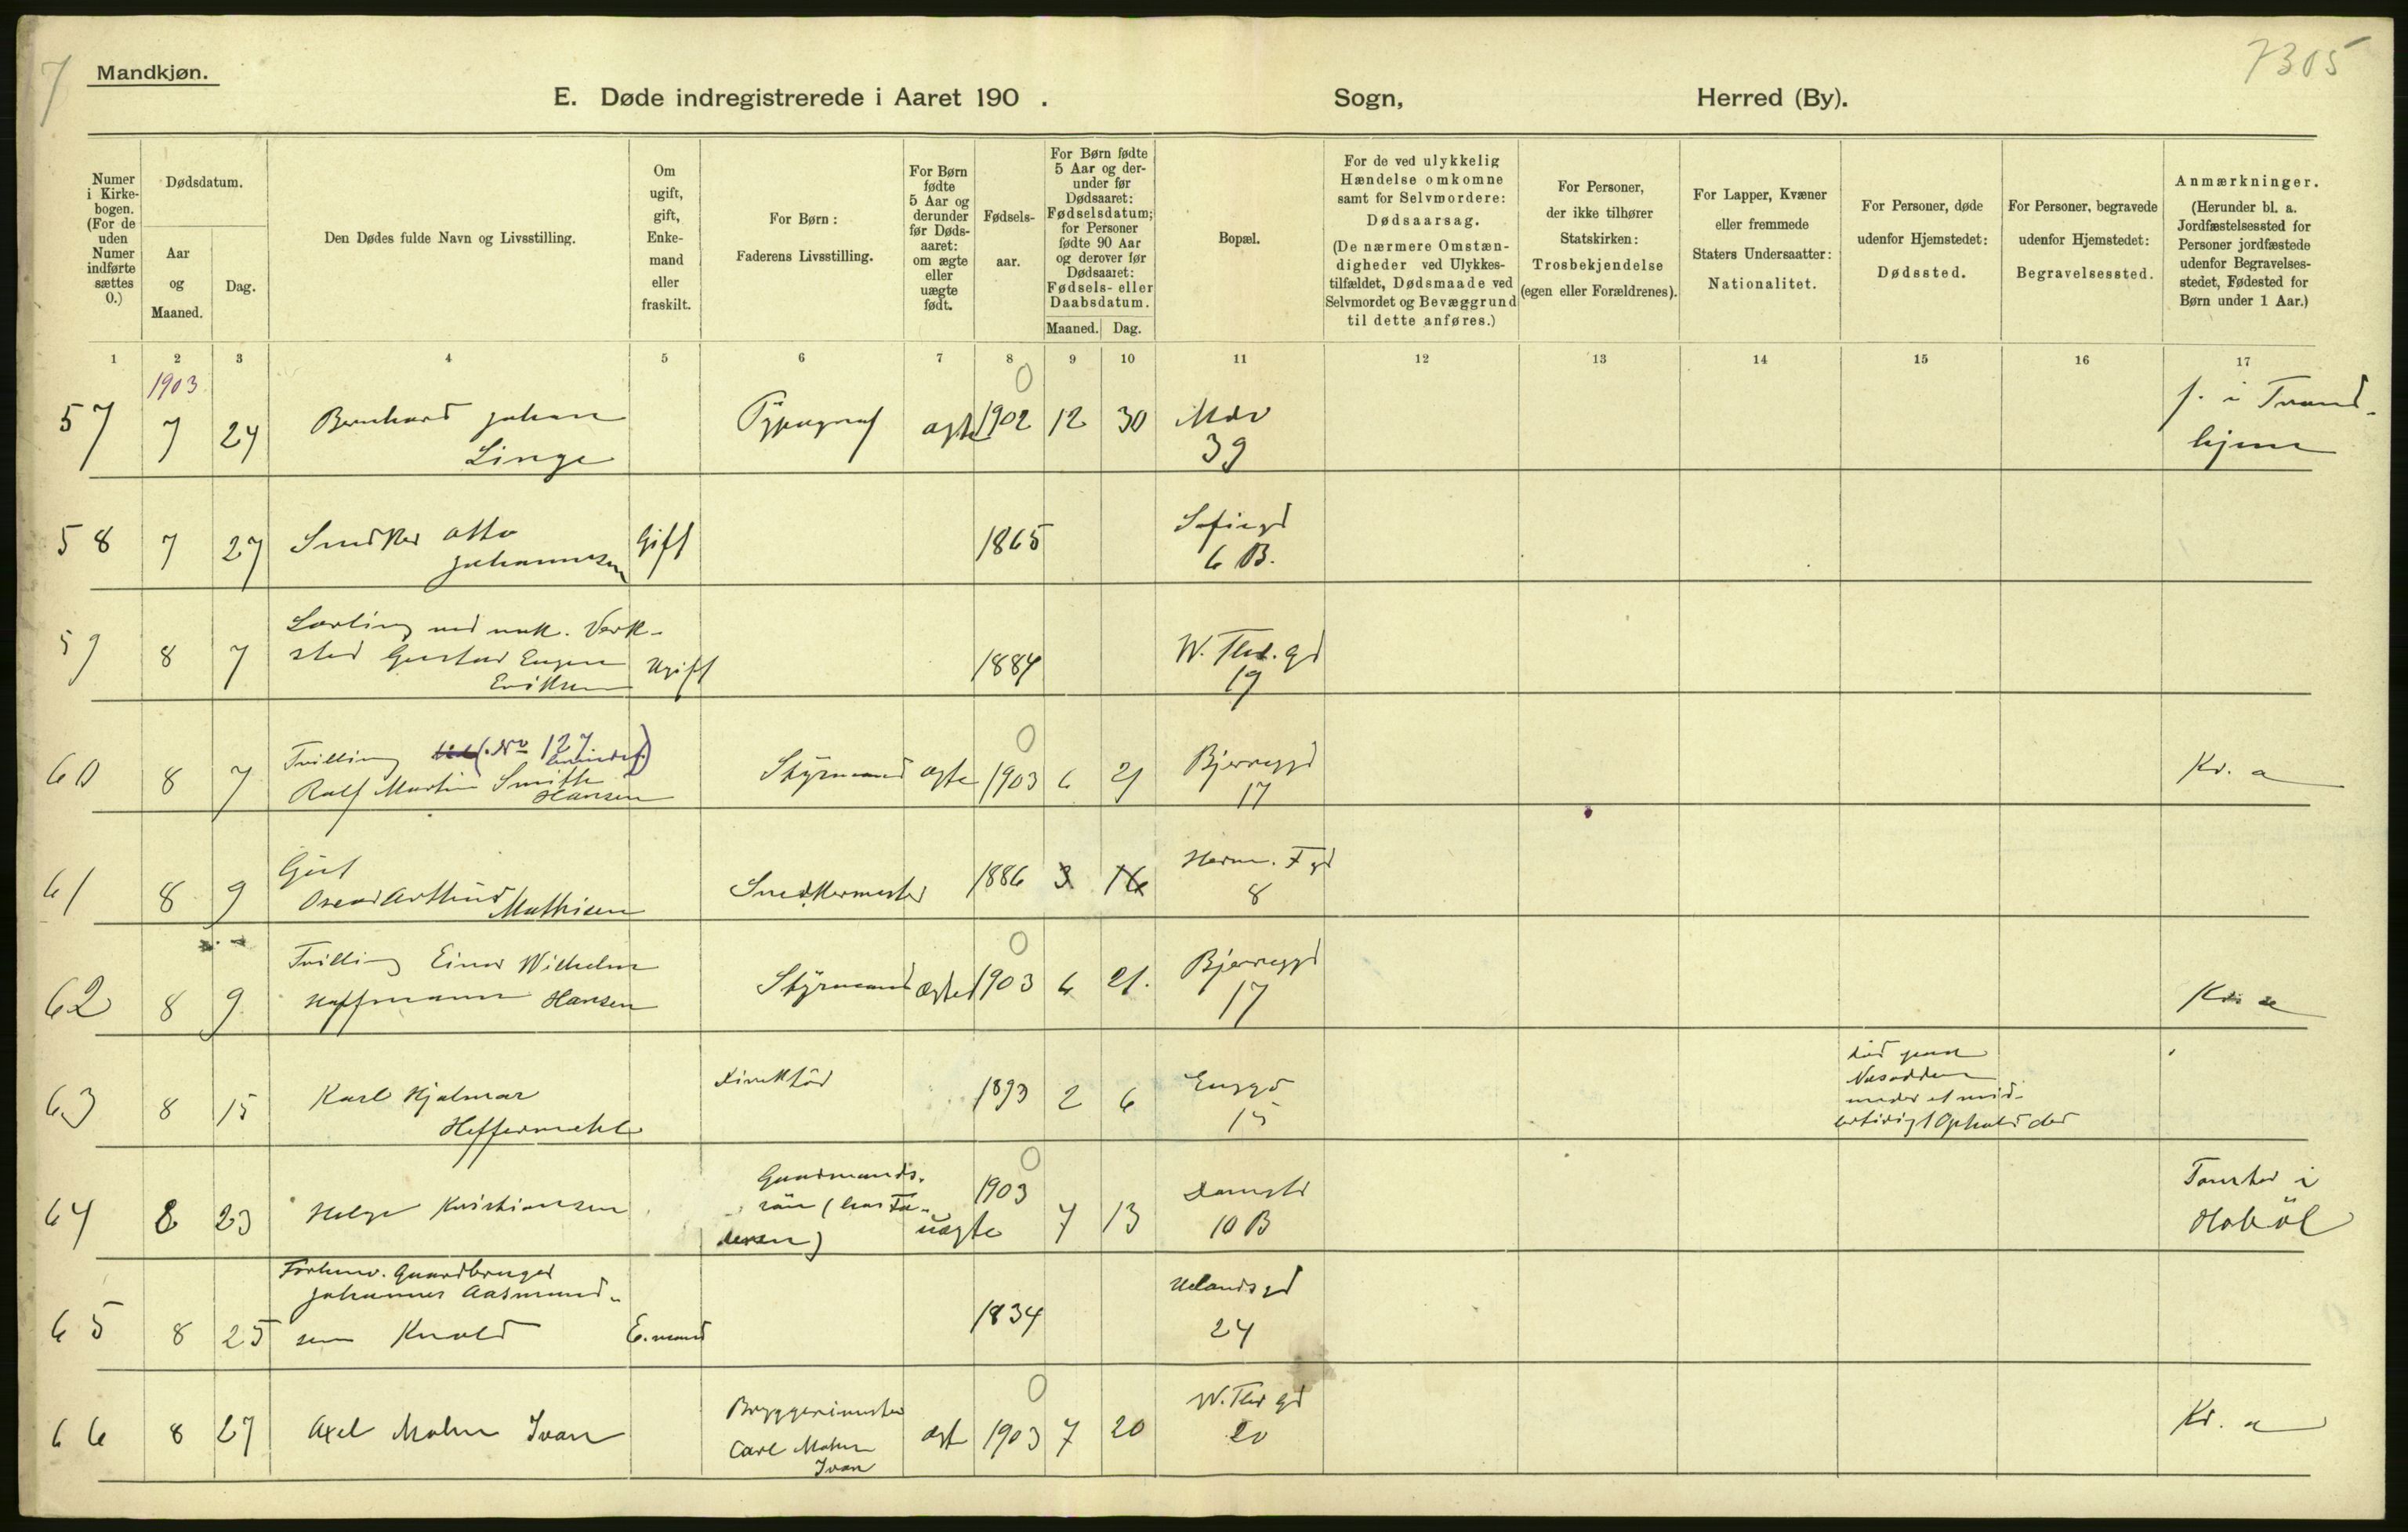 7
Mandkjøn.
7305
E. Døde indregistrerede i Aaret 190 . Sogn, Herred (By).
Numer i Kirkebogen. (For de uden Numer indførte sættes 0.)
Dødsdatum.
Aar og Maaned.
Dag.
Den Dødes fulde Navn og Livsstilling.
Om ugift, gift, Enkemand eller fraskilt.
For Børn: Faderens Livsstilling.
For Børn fødte 5 Aar og derunder før Dødsaaret: om ægte eller uægte født.
Fødselsaar.
For Børn fødte 5 Aar og derunder før Dødsaaret: Fødselsdatum; for Personer fødte 90 Aar og derover før Dødsaaret: Fødsels- eller Daabsdatum.
Maaned. Dag.
Bopæl.
For de ved ulykkelig Hændelse omkomne samt for Selvmordere: Dødsaarsag. (De nærmere Omstændigheder ved Ulykkestilfældet, Dødsmaade ved Selvmordet og Bevæggrund til dette anføres.)
For Personer, der ikke tilhører Statskirken: Trosbekjendelse (egen eller Forældrenes).
For Lapper, Kvæner eller fremmede Staters Undersaatter: Nationalitet.
For Personer, døde udenfor Hjemstedet: Dødssted.
For Personer, begravede udenfor Hjemstedet: Begravelsessted.
Anmærkninger. (Herunder bl. a. Jordfæstelsessted for Personer jordfæstede udenfor Begravelsesstedet, Fødested for Børn under 1 Aar.)
1 2 3 4 5 6 7 8 9 10 11 12 13 14 15 16 17
1903
57 7 24 Bernhard Johan Linge Typograf ægte 0 1902 12 30 Mdv 39 f. i Trondhjem
58 7 27 Snedker Otto Johannesen Gift 1865 Sofiegd 6 B.
59 8 7 Lærling ved mek. Verksted Gustav Eugen Eriksen Ugift 1884 W. Thr. gd 19
60 8 7 Tvilling (No 127 kvindekj.) Ralf Martin Smith Hansen Styrmand ægte 0 1903 6 21 Bjerregd 17 Kr. a
61 8 9 Gut Oscar Arthur Mathisen Snedkermester 1886 3 16 Herm. F gd 8
62 8 9 Tvilling Einar Wilhelm Hoffmann Hansen Styrmand ægte 0 1903 6 21. Bjerregd 17 Kr. a
63 8 15 Karl Hjalmar Heffermehl Direktør 1893 2 6 Enggd 15 død paa Nesodden under et midlertidigt Ophold der
64 8 23 Helge Kristiansen Gaardmandssøn (barnefaderen) uægte 0 1903 7 13 Damstr 10 B Tomter i Hobøl
65 8 25 Forhenv. Gaardbruger Johannes Aasmundsen Kvold E.mand 1834 Uelandsgd 24
66 8 27 Axel Malm Ivan Bryggerimester Carl Malm Ivan ægt 0 1903 7 20 W. Thr gd 20 Kr. a